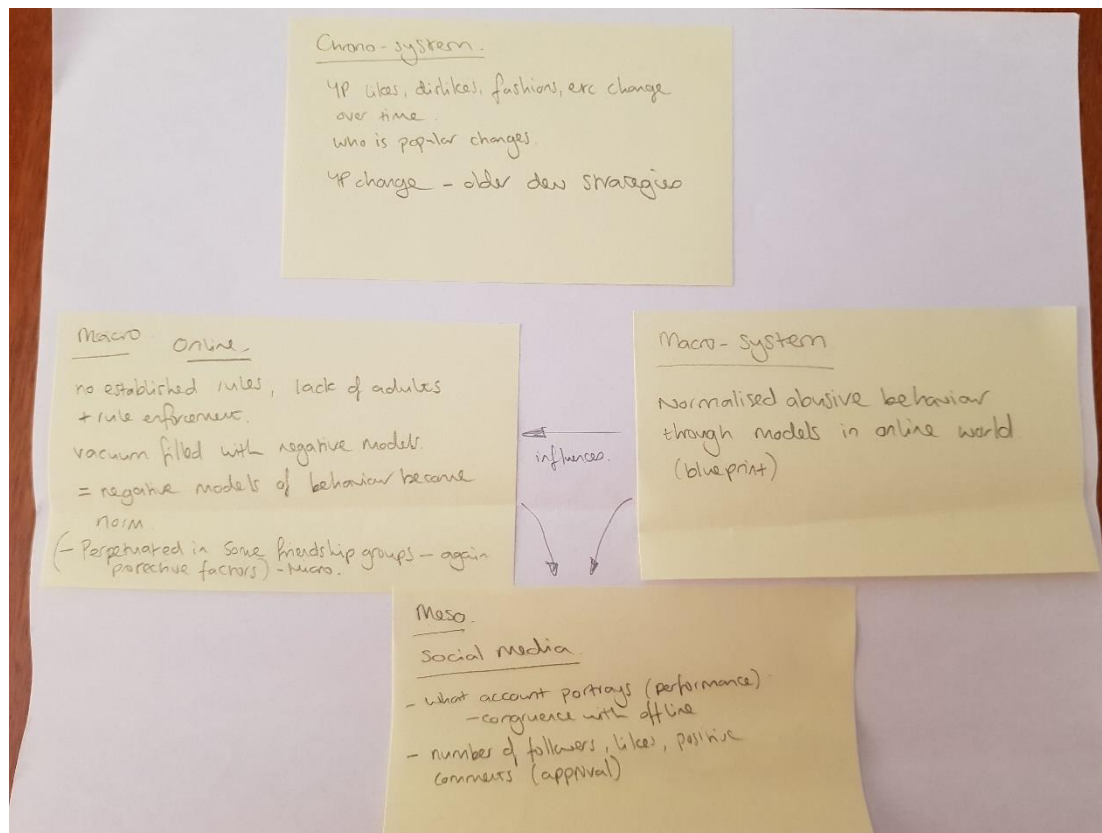 Chrono-system.
YP likes, dislikes, fashions, etc change
over time.
who is popular changes.
YP change - older dev strategies
Macro Online
no established rules, lack of adults
+ rule enforcement.
vacuum filled with negative models.
= negative models of behaviour become
norm
(- Perpetuated in some friendship groups - again
protective factors) - Micro.
influences.
Macro-system
Normalised abusive behaviour
through models in online world
(blueprint)
Meso.
Social media
- what account portrays (performance)
- congruence with offline
- number of followers, likes, positive
comments (approval)